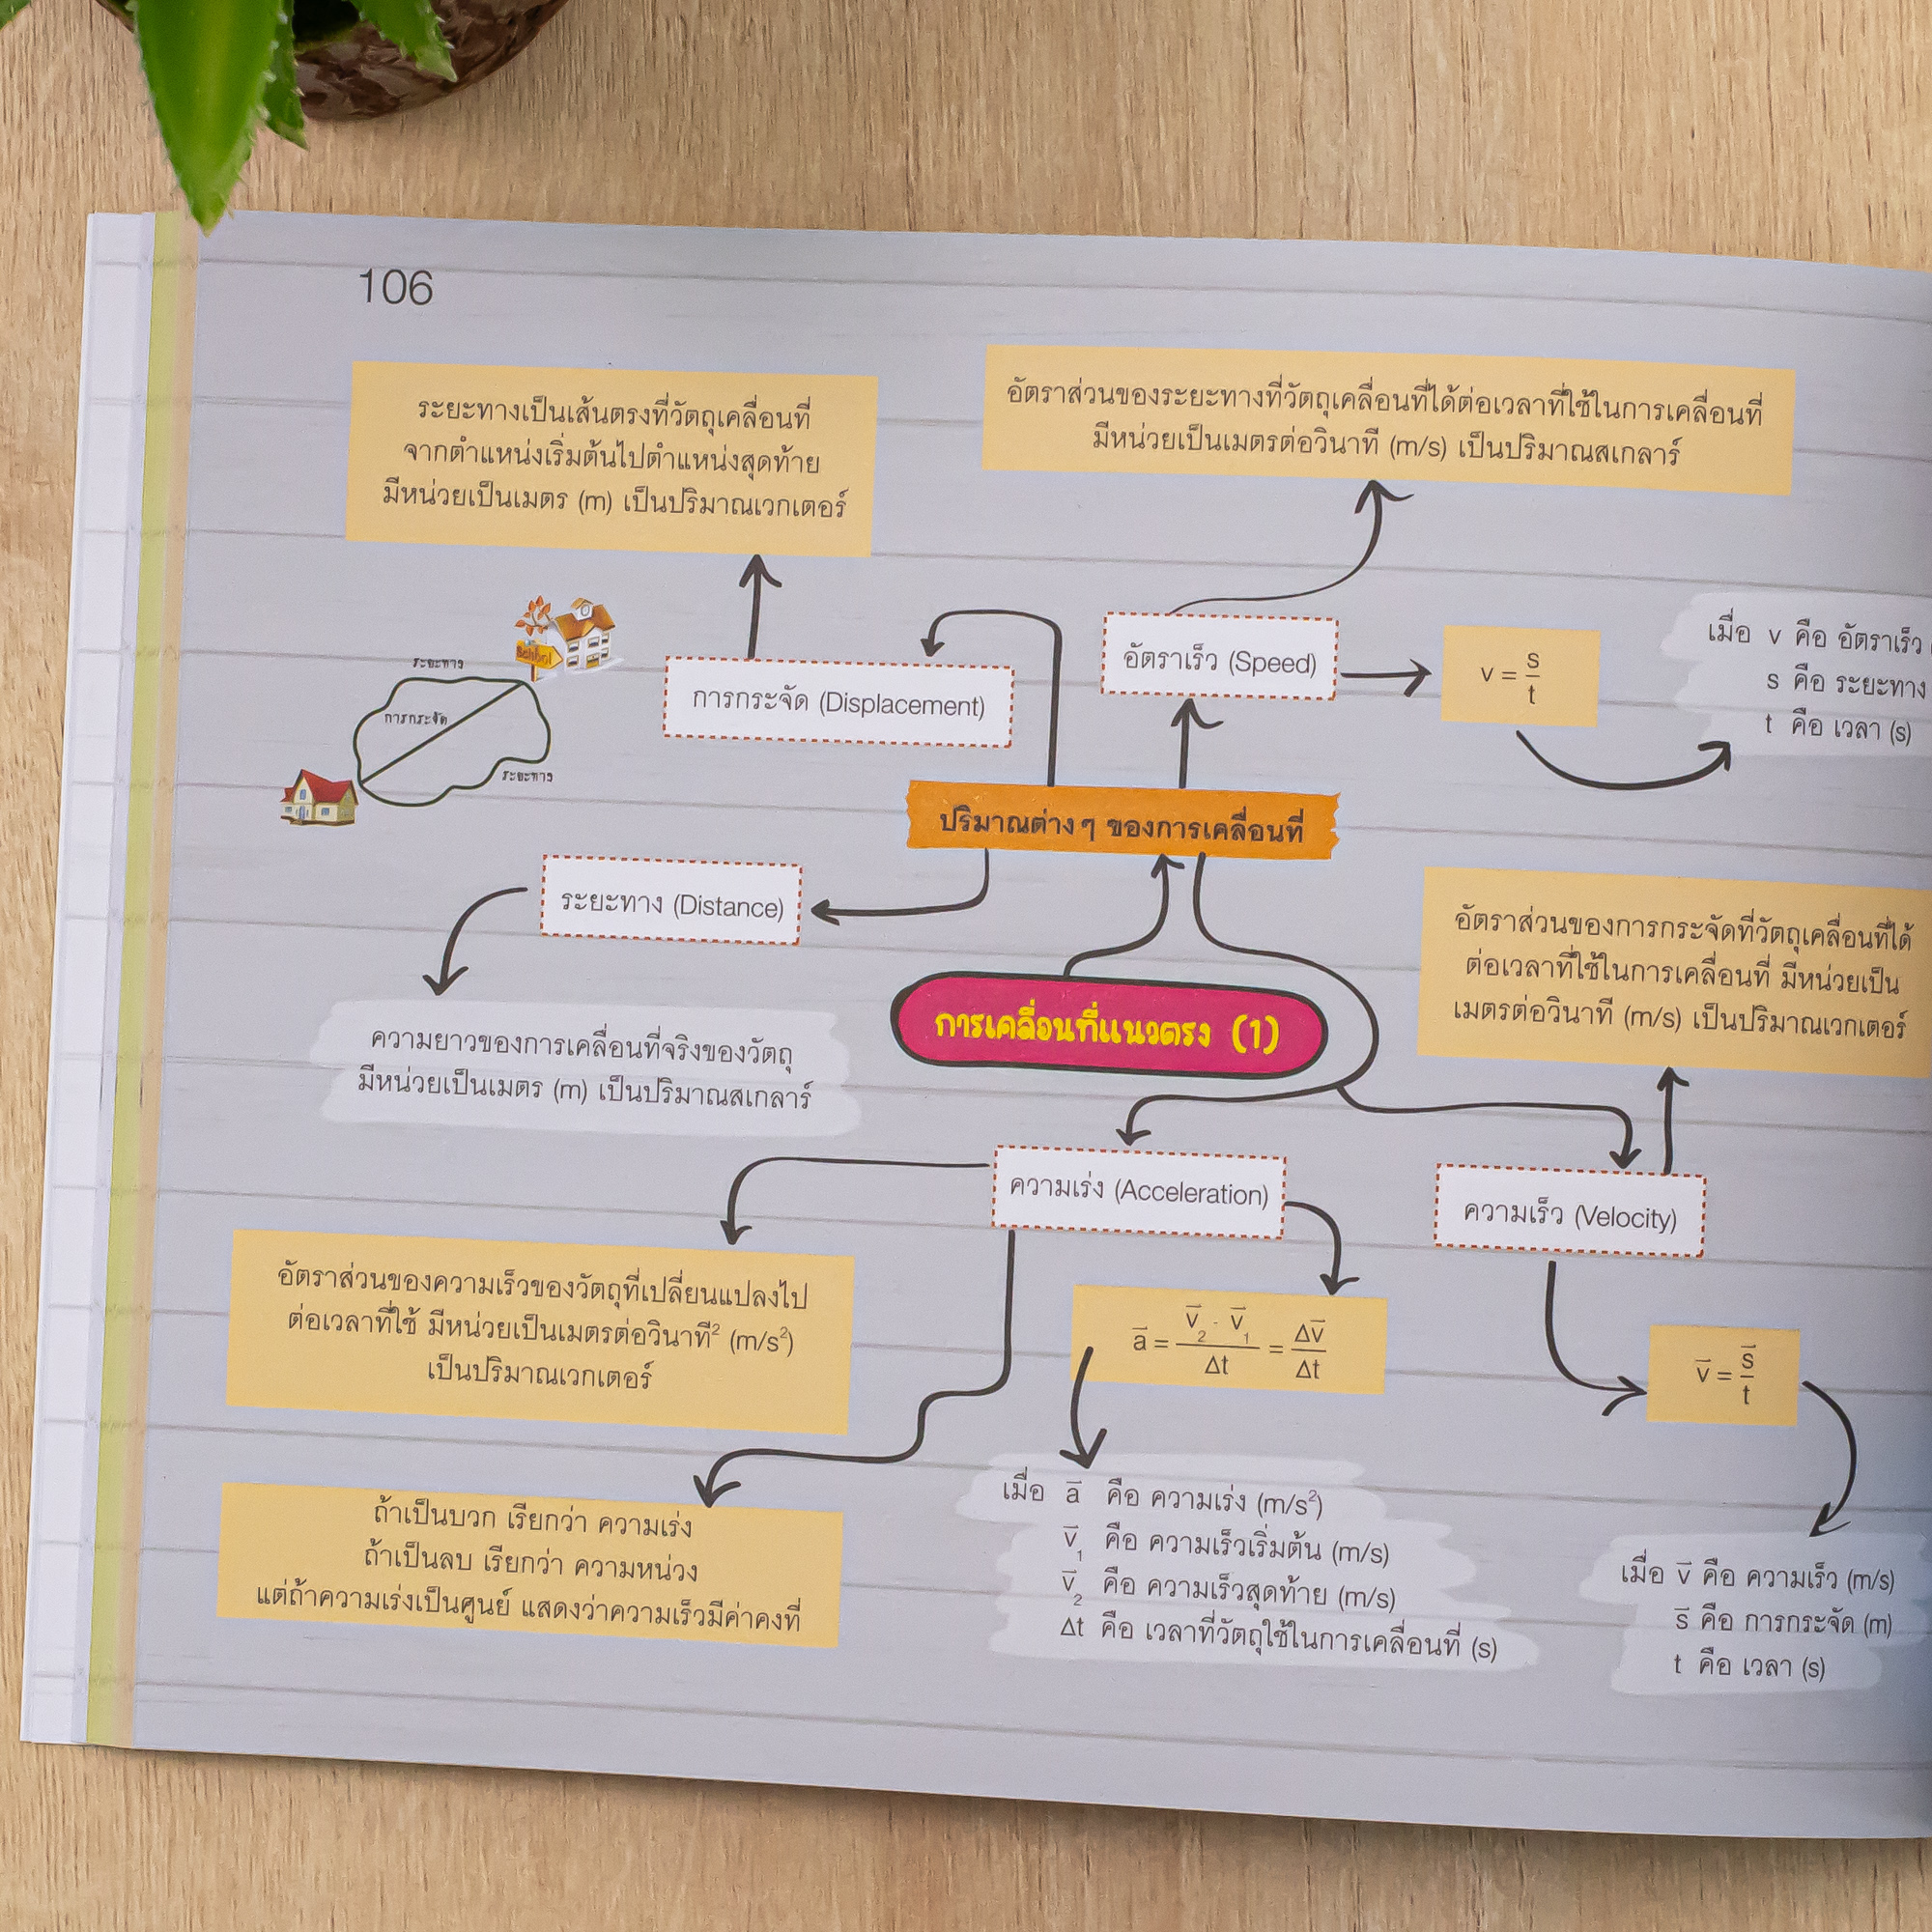 106
ระยะทางเป็นเส้นตรงที่วัตถุเคลื่อนที่
จากตำแหน่งเริ่มต้นไปตำแหน่งสุดท้าย
มีหน่วยเป็นเมตร (m) เป็นปริมาณเวกเตอร์
อัตราส่วนของระยะทางที่วัตถุเคลื่อนที่ได้ต่อเวลาที่ใช้ในการเคลื่อนที่
มีหน่วยเป็นเมตรต่อวินาที (m/s) เป็นปริมาณสเกลาร์
School
ระยะทาง
การกระจัด
ระยะทาง
การกระจัด (Displacement)
อัตราเร็ว (Speed)
v = s/t
เมื่อ v คือ อัตราเร็ว
s คือ ระยะทาง
t คือ เวลา (s)
ปริมาณต่างๆ ของการเคลื่อนที่
ระยะทาง (Distance)
ความยาวของการเคลื่อนที่จริงของวัตถุ
มีหน่วยเป็นเมตร (m) เป็นปริมาณสเกลาร์
การเคลื่อนที่แนวตรง (1)
อัตราส่วนของการกระจัดที่วัตถุเคลื่อนที่ได้
ต่อเวลาที่ใช้ในการเคลื่อนที่ มีหน่วยเป็น
เมตรต่อวินาที (m/s) เป็นปริมาณเวกเตอร์
ความเร่ง (Acceleration)
ความเร็ว (Velocity)
อัตราส่วนของความเร็วของวัตถุที่เปลี่ยนแปลงไป
ต่อเวลาที่ใช้ มีหน่วยเป็นเมตรต่อวินาที² (m/s²)
เป็นปริมาณเวกเตอร์
a̅ = (v̅₂ - v̅₁)/Δt = Δv̅/Δt
v̅ = s̅/t
ถ้าเป็นบวก เรียกว่า ความเร่ง
ถ้าเป็นลบ เรียกว่า ความหน่วง
แต่ถ้าความเร่งเป็นศูนย์ แสดงว่าความเร็วมีค่าคงที่
เมื่อ a̅ คือ ความเร่ง (m/s²)
v̅₁ คือ ความเร็วเริ่มต้น (m/s)
v̅₂ คือ ความเร็วสุดท้าย (m/s)
Δt คือ เวลาที่วัตถุใช้ในการเคลื่อนที่ (s)
เมื่อ v̅ คือ ความเร็ว (m/s)
s̅ คือ การกระจัด (m)
t คือ เวลา (s)